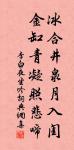 冰合井泉月入闺
金缸青凝照悲啼
李白夜坐吟词典网集